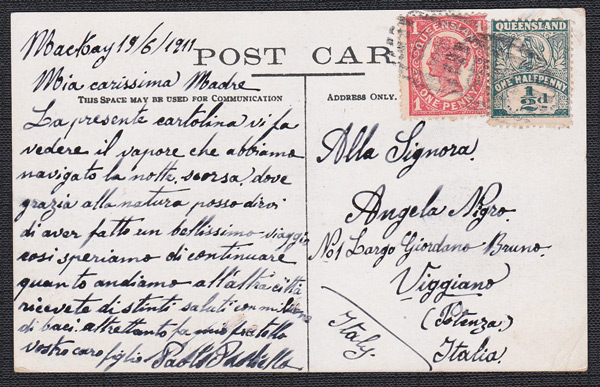 Mackay 19/6/1911
POST CAR
Mia carissima Madre
THIS SPACE MAY BE USED FOR COMMUNICATION
La presente cartolina vi fa
vedere il vapore che abbiamo
navigato la notte scorsa. dove
grazia alla natura posso dirvi
di aver fatto un bellissimo viaggio
così speriamo di continuare
quanto andiamo all'altra città
ricevete distinti saluti con milione
di baci. altrettanto la mio fratello
vostro caro figlio Paolo
ADDRESS ONLY.
QUEENSLAND
1 1
ONE PENNY
QUEENSLAND
ONE HALFPENNY
½d
Alla Signora.
Angela Nigro.
No 1 Largo Giordano Bruno.
Viggiano
(Potenza.)
Italia.
Italy